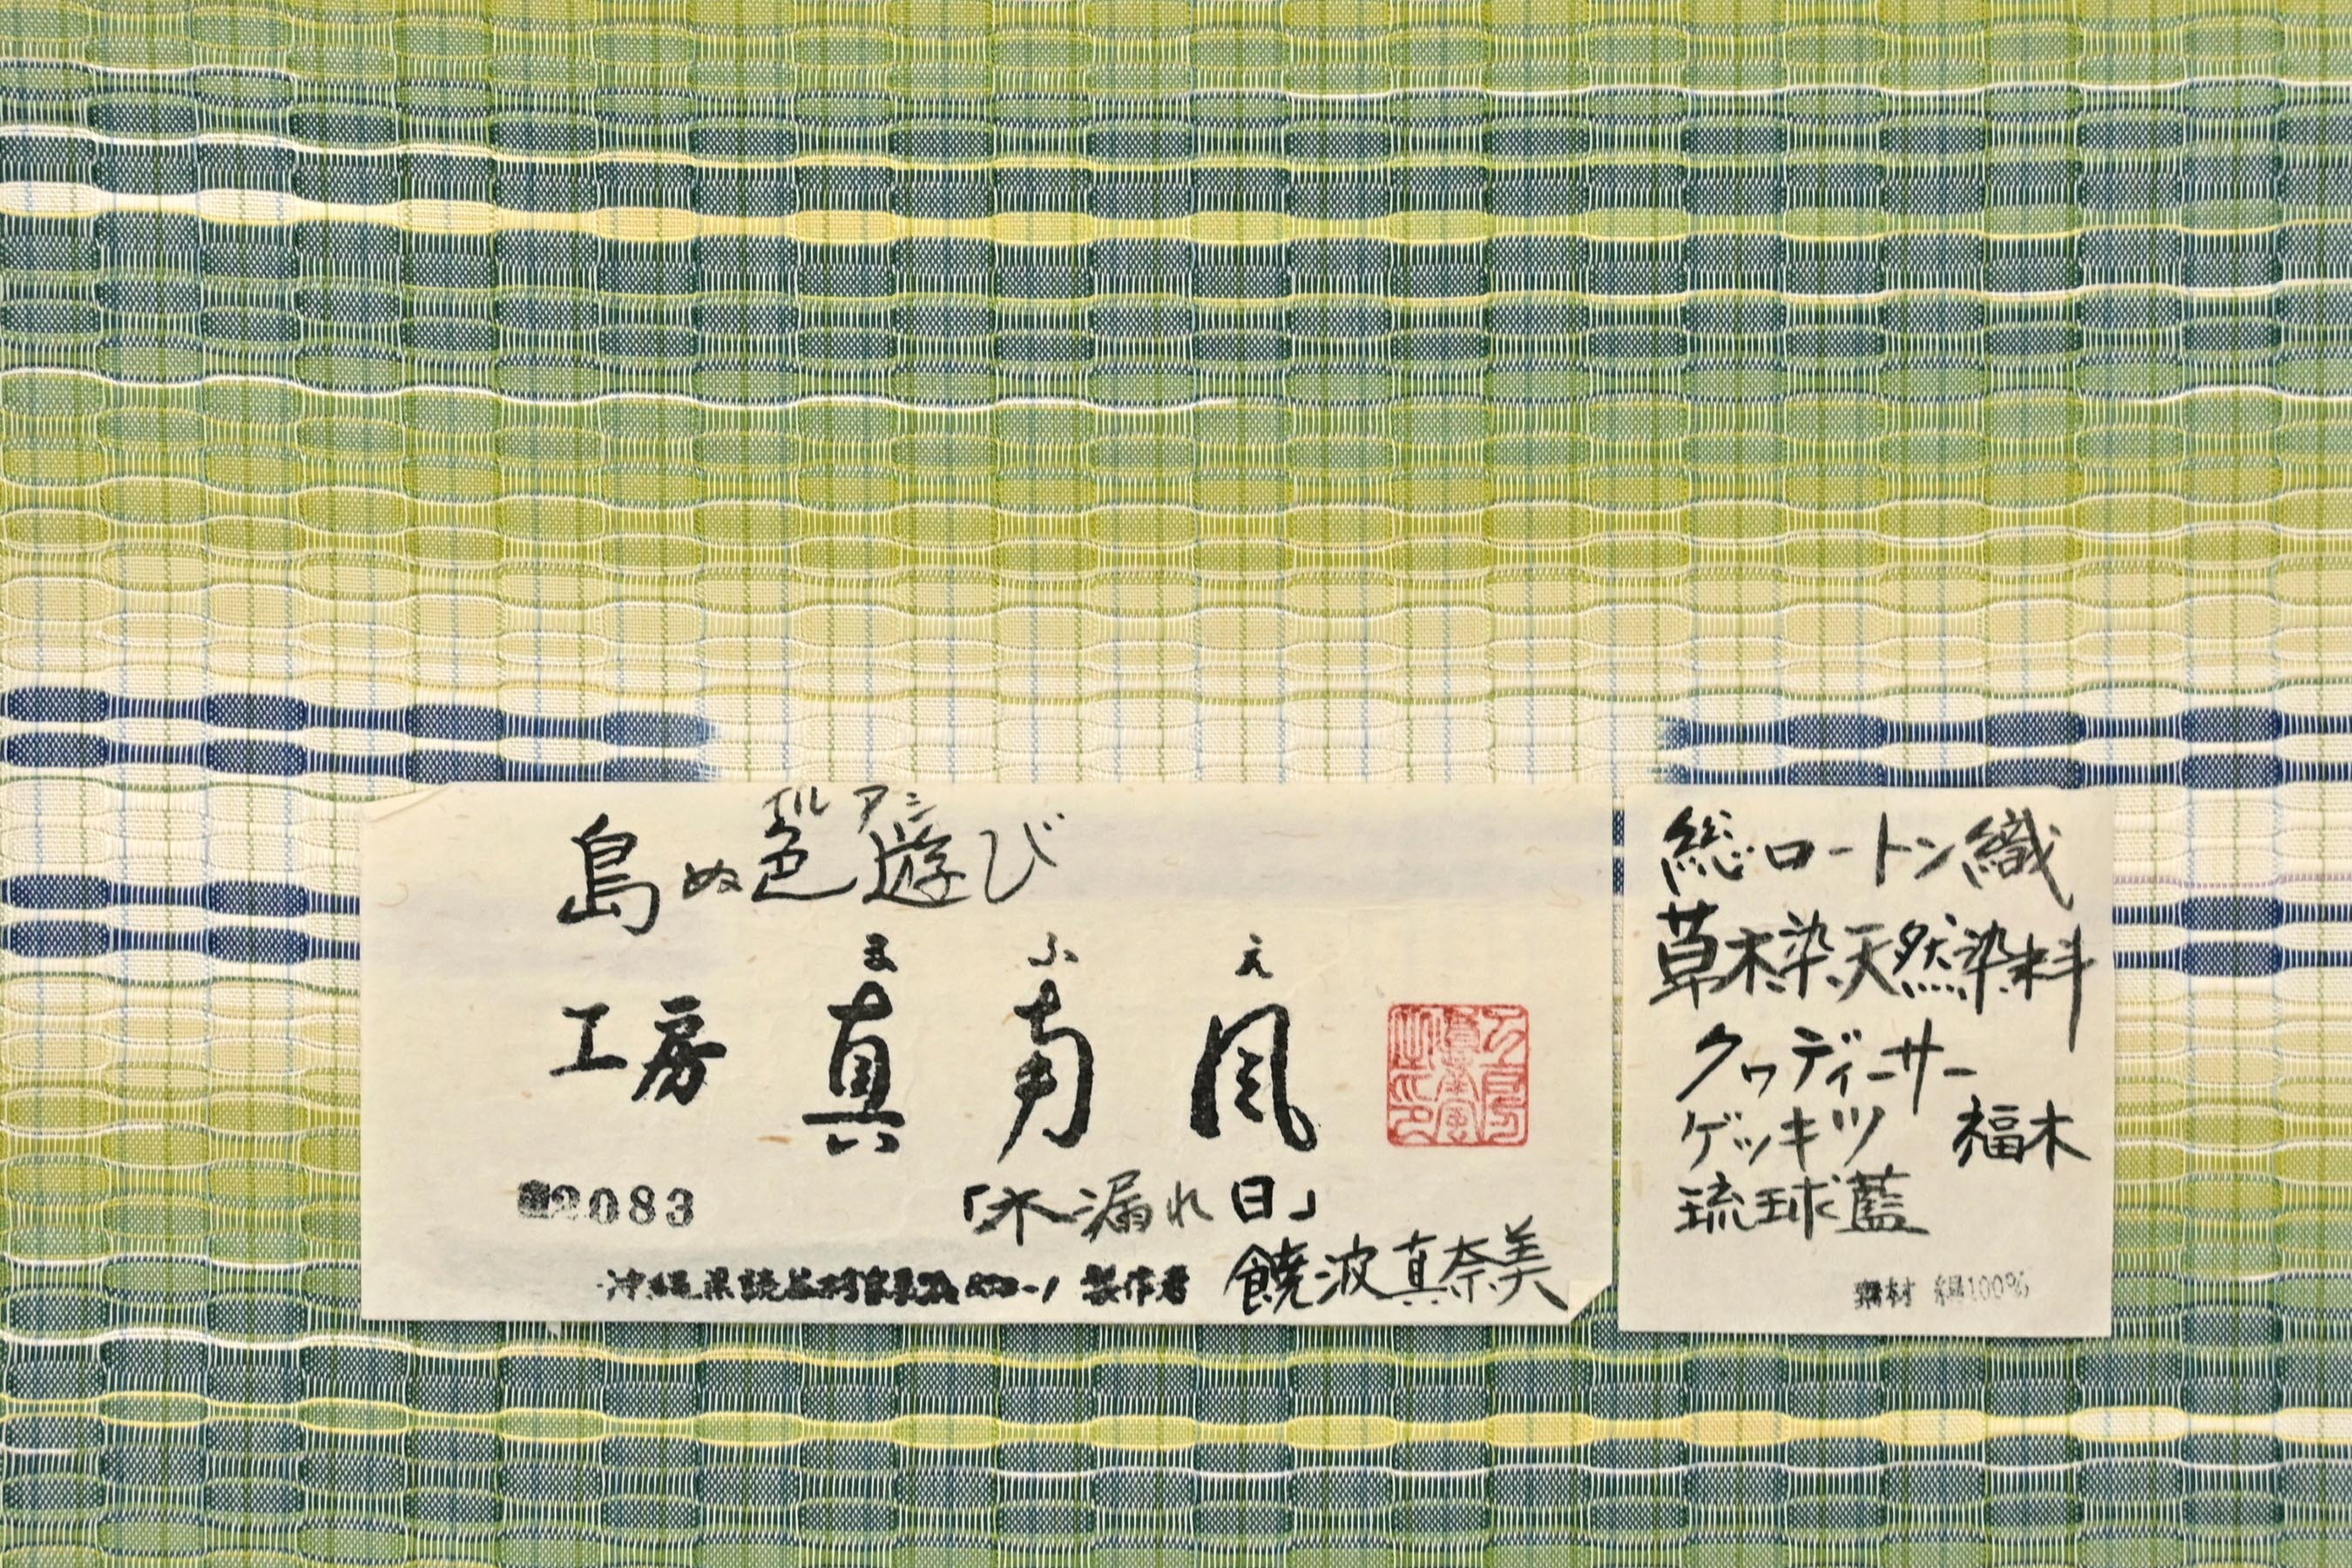 島ぬ色遊び
イル アシ
ま ふ え
工房 真南風
2083
「木漏れ日」
沖縄県読谷村 製作者 饒波真奈美
総ロートン織
草木染天然染料
クワディーサー
ゲッキツ 福木
琉球藍
素材 絹100%